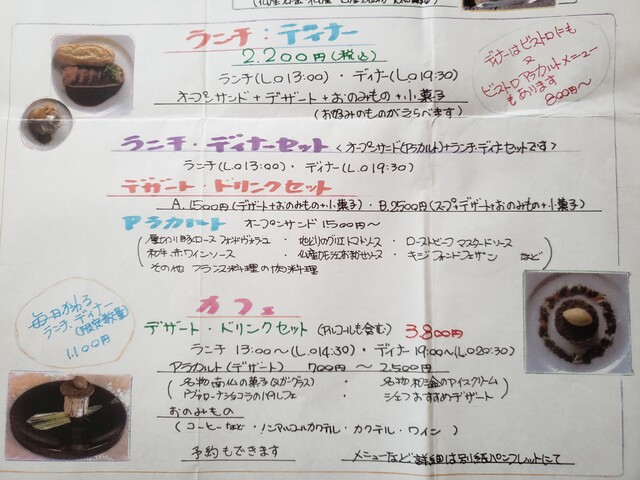 ランチ・ディナー
2.200円(税込)
ランチ(L.O 13:00)・ディナー(L.O 19:30)
オープンサンド+デザート+おのみもの+小菓子
(お好みのものがえらべます)
ディナーはビストロにも
ビストロアラカルトメニュー
もあります
800円〜
ランチ・ディナーセット〈オープンサンド(アラカルト)+ランチ・ディナーセットです〉
ランチ(L.O 13:00)・ディナー(L.O 19:30)
デザート・ドリンクセット
A. 1500円(デザート+おのみもの+小菓子)・B. 2500円(スープ+デザート+おのみもの+小菓子)
アラカルト オープンサンド 1500円〜
ロース フォン・ド・ヴォーソース・地どりのグリエ トマトソース・ローストビーフ マスタードソース
和牛 赤ワインソース・キジ フォン・ド・フェザン など
その他 フランス料理の肉料理
カフェ
毎日かわる
ランチ・ディナー
(限定数量)
1.100円
デザート・ドリンクセット(アルコールも含む) 3.800円
ランチ 13:00〜(L.O 14:30)・ディナー 19:00〜(L.O 20:30)
アラカルト(デザート) 700円〜2.500円
名物 南仏の菓子(ヌガーグラス)・名物 和三盆のアイスクリーム
ヴァローナショコラのパルフェ・シェフおすすめデザート
おのみもの
(コーヒーなど・ノンアルコールカクテル・カクテル・ワイン)
予約もできます
メニューなど詳細は別紙パンフレットにて